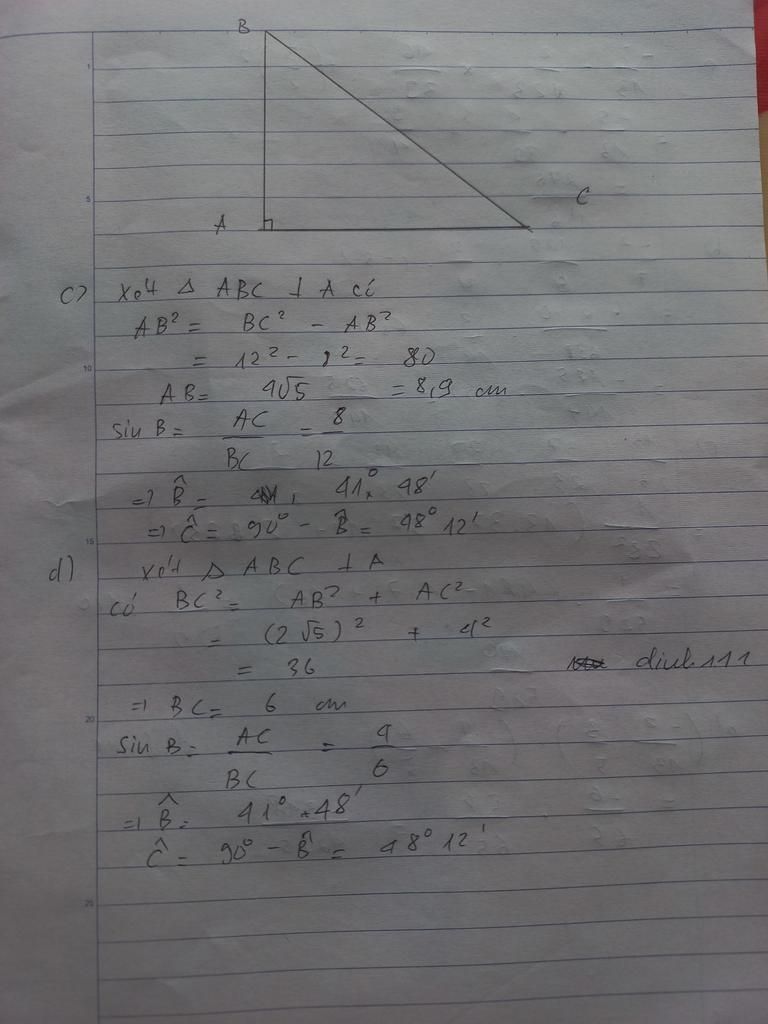 B
A
C
c) Xét Δ ABC ⊥ A có
AB² = BC² - AB²
= 12² - 8² = 80
AB = 4√5 = 8,9 cm
sin B = AC/BC = 8/12
=> B̂ = 41° 48'
=> Ĉ = 90° - B̂ = 48° 12'
d) Xét Δ ABC ⊥ A
có BC² = AB² + AC²
= (2√5)² + 4²
= 36
dinh111
=> BC = 6 cm
sin B = AC/BC = 4/6
=> B̂ = 41° 48'
Ĉ = 90° - B̂ = 48° 12'
1
5
10
15
20
25